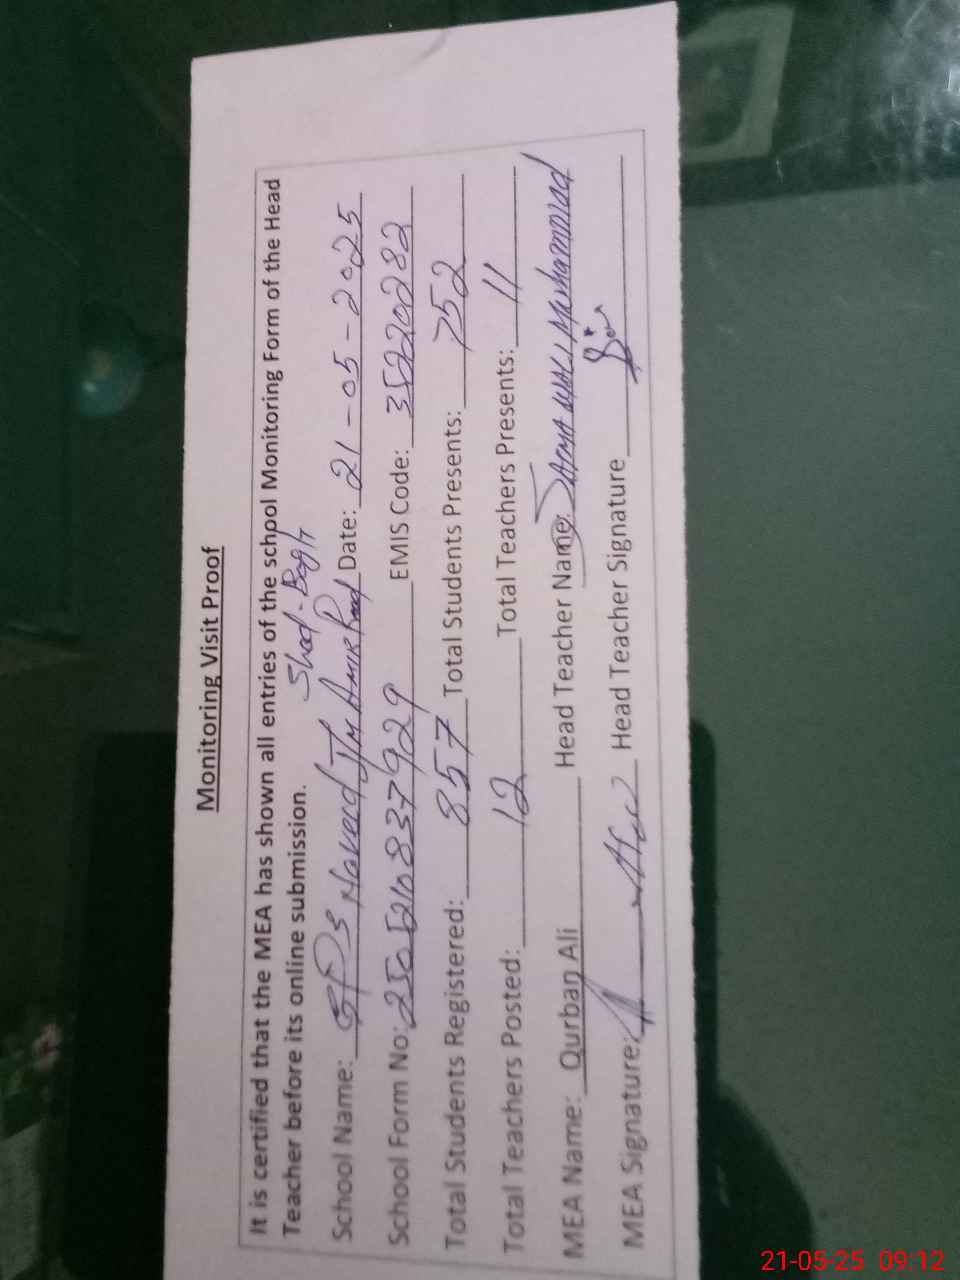 Monitoring Visit Proof
It is certified that the MEA has shown all entries of the school Monitoring Form of the Head
Teacher before its online submission.
Shad-Bagh
School Name: GPS Naveed J/M Amir Road Date: 21-05-2025
School Form No: 2505210837929 EMIS Code: 35220282
Total Students Registered: 857 Total Students Presents: 752
Total Teachers Posted: 12 Total Teachers Presents: 11
MEA Name: Qurban Ali Head Teacher Name: Muhammad
MEA Signature: Head Teacher Signature
21-05-25 09:12